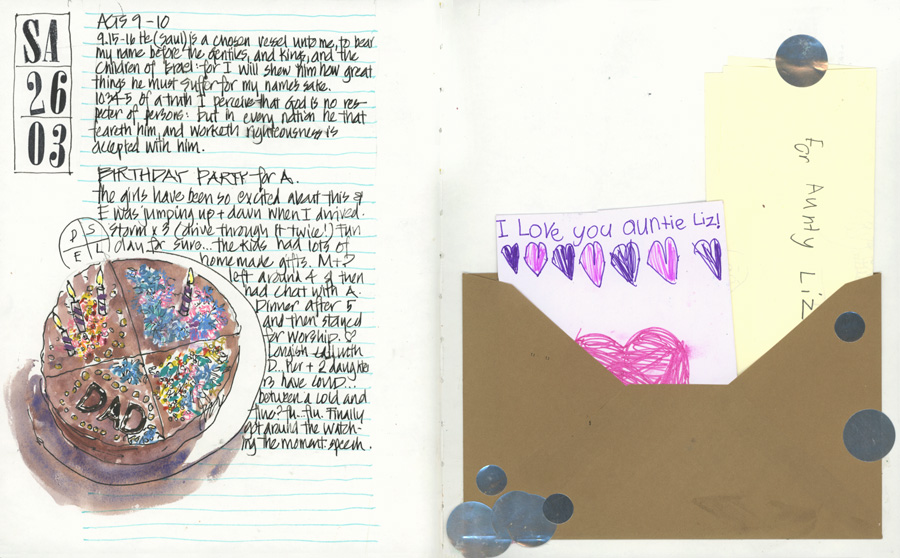 SA
26
03
ACTS 9-10
9.15-16 He (Saul) is a chosen vessel unto me, to bear
my name before the Gentiles, and Kings, and the
children of Israel: for I will show him how great
things he must suffer for my name's sake.
10.34-5 of a truth I perceive that God is no res-
pecter of persons: but in every nation he that
feareth him, and worketh righteousness is
accepted with him.
BIRTHDAY PARTY for A.
The girls have been so excited about this &
E was jumping up + down when I arrived.
Storm x 3 (drive through it twice!) Fun
day for sure... the kids had lots of
homemade gifts. M+D
left around 4 & then
had chat with A.
Dinner after 5
and then stayed
for worship.
Longish call with
D. Her + 2 daughter
r3 have COVID...
between a cold and
flu? fu.. flu. Finally
got around the watch-
ing the moment speech.
P S
E L
DAD
I Love you auntie Liz!
For Aunty Liz